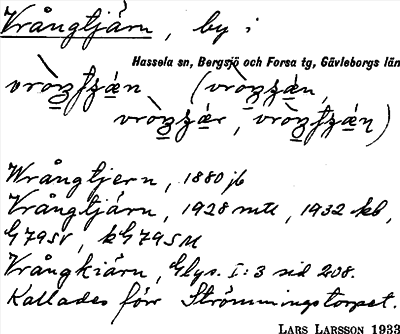 Vrångtjärn, by i
Hassela sn, Bergsjö och Forsa tg, Gävleborgs län
Wrångtjern, 1880 jb
Vrångtjärn, 1928 mtl, 1932 kb,
G79SV, kG79SM
Vrångkiärn, Glys. I:3 sid 208.
Kallades förr Strömmingstorpet.
LARS LARSSON 1933